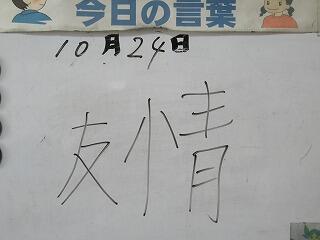 今日の言葉
10月24日
友情